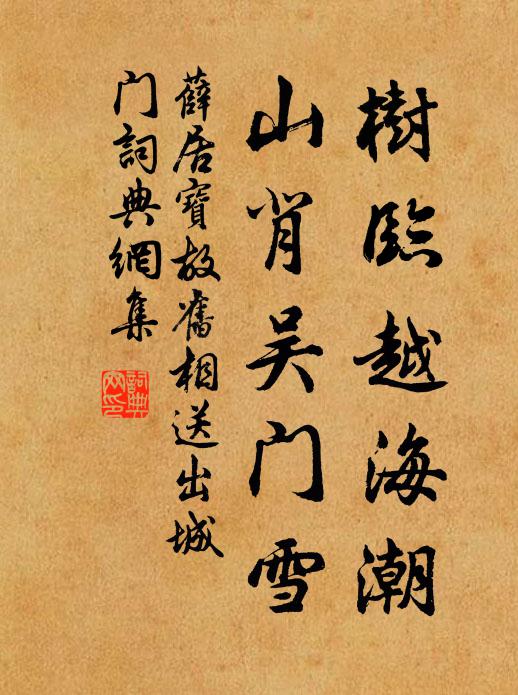 樹臨越海潮
山背吴門雪
薛居寶故舊相送出城
門詞典網集
詞典網印